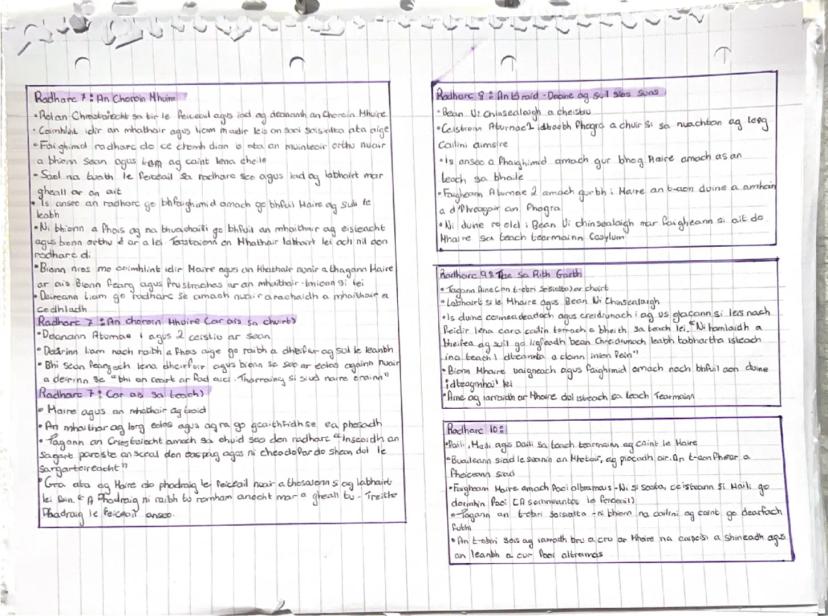 Radharc 7: An Choróin Mhuire
• Réalan Chríostaíocht sa tír le feiceáil agus iad ag déanamh an Choróin Mhuire
• Coimhlint idir an mháthair agus Liam maidir leis an saol atá aige
• Faighimid radharc de ce chomh dian is atá an muintir orthu nuair
a bhíonn Seán agus Liam ag caint lena chéile
• Saol na tuaithe le feiceáil sa radharc seo agus iad ag labhairt mar
gheall ar an áit
• Is anseo an radharc go bhfaighimid amach go bhfuil Maire ag súil le
leabh
• Ní bhíonn a fhios ag na buachaillí go bhfuil an mháthair ag éisteacht
agus bíonn orthu é ar a léi Teastaíonn on Mháthair labhairt lei ach níl aon
radharc di
• Bíonn níos mó coimhlint idir Maire agus an Mháthair nuair a thagann Maire
ar ais Bíonn fearg agus frustrachas ar an mháthair
• Deireann Liam go radharc sé amach nuair a rachaidh a mháthair a
codhladh
Radharc 7: An choróin Mhuire (ar ais sa chúirt)
• Déanann Aturnae 1 agus 2 ceistiú ar Seán
• Deirinn Liam nach raibh a fhios aige go raibh a dheifiúr ag súil le leanbh
• Bhí Seán feargach lena dheirfiúr agus bíonn sé seo ar eolas againn nuair
a deirinn sé "bhí an ceart ar fad aici. Tharraing sí siúd náire orainn"
Radharc 7: (ar ais sa teach)
• Maire agus an mháthair ag troid
• An mháthair ag lorg eolas agus ag rá go gcaithfidhse é a phósadh
• Tagann an Críostaíocht amach sa chuid seo den radharc "Inseoidh an
sagart paróiste an scéal don easpaig agus ní cheadófar do Sheán dul le
sagartóireacht"
• Grá atá ag Maire do Phádraig le feiceáil nuair a thosaíonn sí ag labhairt
leis féin. "A Phádraig ní raibh tú romham anocht mar a gheall tú - Tréithe
Phádraig le feiceáil anseo.
Radharc 8: An Bráid - Daoine ag súl síos suas
• Bean Uí Chinsealaigh a cheistiú
• Ceistíonn Aturnae 2 í dtaobh Fhógra a chuir sí sa nuachtán ag lorg
Cailíní aimsire
• Is anseo a fhaighimid amach gur bhog Maire amach as an
teach sa bhaile
• Faigheann Aturnae 2 amach gurbh í Maire an t-aon duine a amháin
a d'fhreagair an fhógra
• Ní duine ró olc í Bean Uí Chinsealaigh mar faigheann sí áit do
Mhaire sa teach tearmainn (asylum)
Radharc 9: Tae sa Rith Garth
• Tagann Áine (an t-oibrí sóisialta) ar chuairt
• Labhair sí le Mháire agus Bean Uí Chinsealaigh
• Is duine coimeádach agus creidiúnach í agus glacann sí leis nach
féidir léna cara cailín torrach a bheith sa teach léi. "Ní hamlaidh a
bheifeá ag súil go ligfeadh bean chreidiúnach leabh tabhartha isteach
ina teach i dteannta a clann inion féin"
• Bíonn Mhaire uaigneach agus faighimid amach nach bhfuil aon duine
léi
• Áine ag iarraidh ar Mhaire dul isteach sa teach Tearmainn
Radharc 10:
• Pailí, Mailí agus Dailí sa teach tearmainn ag caint le Maire
• Buaileann siad le Seáinín an Mhótair, ag piocadh air. An t-aon fhear a
fheiceann siad
• Faigheann Maire amach faoi altramas - Ní sí sásta, ceistíonn sí Mailí go
faoi
• Tagann an t-oibrí sóisialta - ní bhíonn na cailíní ag caint go dearfach
fúithi
• An t-oibrí sóis ag iarraidh brú a cru ar Mhaire na cáipéisí a shíneadh agus
an leanbh a cur faoi altramas